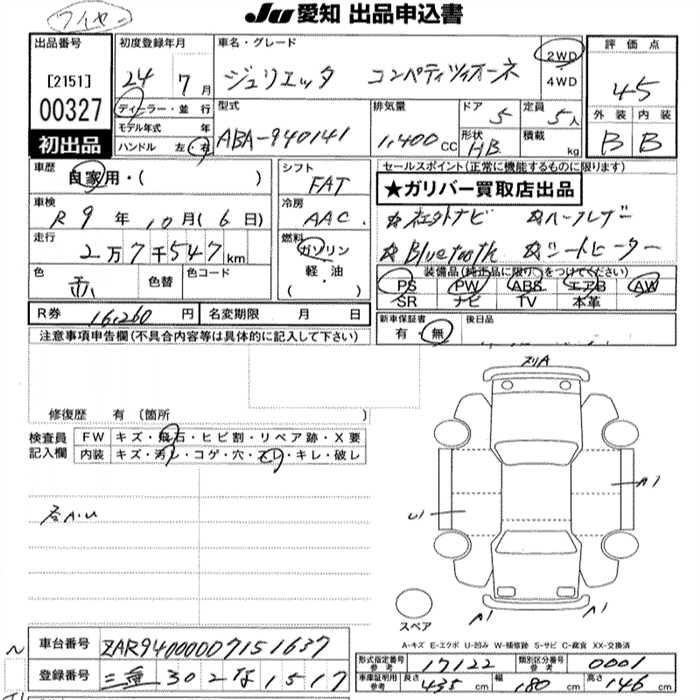 ワイヤー
Ju 愛知 出品申込書
出品番号
[2151]
00327
初出品
初度登録年月
24 7月
ディーラー・並行
モデル年式 年
ハンドル 左・右
車名・グレード
ジュリエッタ コンペティツィオーネ
2WD
4WD
型式
ABA-940141
排気量
1,400CC
ドア 5
形状 HB
定員 5人
積載 kg
評価点
4.5
外装 内装
B B
車歴
自家用・( )
車検
R9年10月(6日)
走行
2万7千547km
色
赤
色替
色コード
シフト
FAT
冷房
AAC
燃料
ガソリン
軽・油
( ・ )
セールスポイント(正常に機能するものに限ります)
★ガリバー買取店出品
☆社外ナビ ☆ハーフレザー
☆Bluetooth ☆シートヒーター
装備品(純正品に限り○をつけてください)
PS PW ABS エアB AW
SR ナビ TV 本革
R券 16,260円
名変期限 月 日
新車保証書
有・無
後日品
注意事項申告欄(不具合内容等は具体的に記入して下さい)
修復歴 有(箇所 )
検査員
記入欄
FW キズ・飛石・ヒビ割・リペア跡・X要
内装 キズ・汚レ・コゲ・穴・スレ・キレ・破レ
各A.U
スリA
A1
U1
A1
A1
スペア
A-キズ E-エクボ U-凹み W-補修跡 S-サビ C-腐食 XX-交換済
車台番号 ZAR94000007151637
登録番号 三重 302 な 1517
形式指定番号 参考 17122
類別区分番号 参考 0001
車庫証明用 参考 長さ 435cm 幅 180cm 高さ 146cm